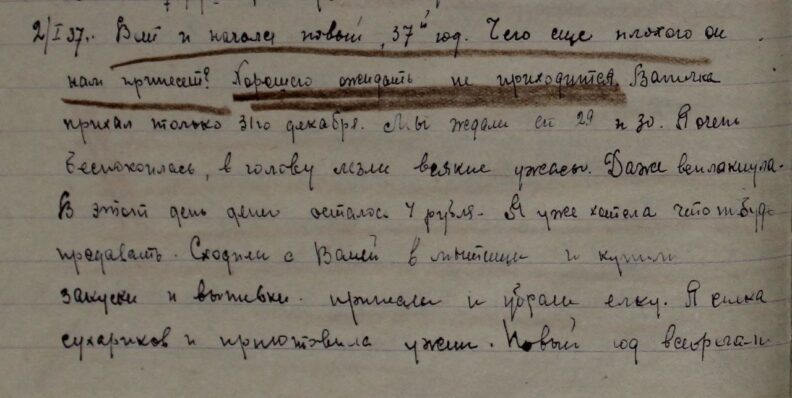 2/I 37. Вот и начался новый, 37й год. Чего еще плохого он
нам принесет? Хорошего ожидать не приходится. Ванечка
приехал только 31го декабря. Мы ждали его 29 и 30. Я очень
беспокоилась, в голову лезли всякие ужасы. Даже всплакнула.
В этот день денег осталось 4 рубля. Я уже хотела что нибудь
продавать. Сходили с Ваней в мытищи и купили
закуски и выпивки. приехали и убрали елку. Я
сухариков и приготовила ужин. Новый год встречали